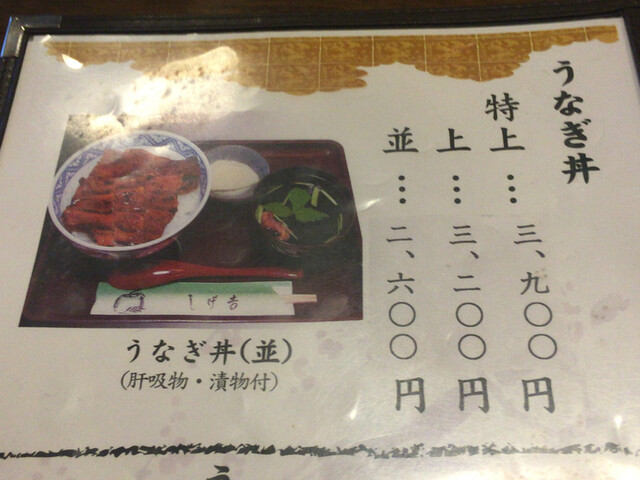 うなぎ丼
特上…三、九〇〇円
上…三、二〇〇円
並…二、六〇〇円
しげ吉
うなぎ丼(並)
(肝吸物・漬物付)